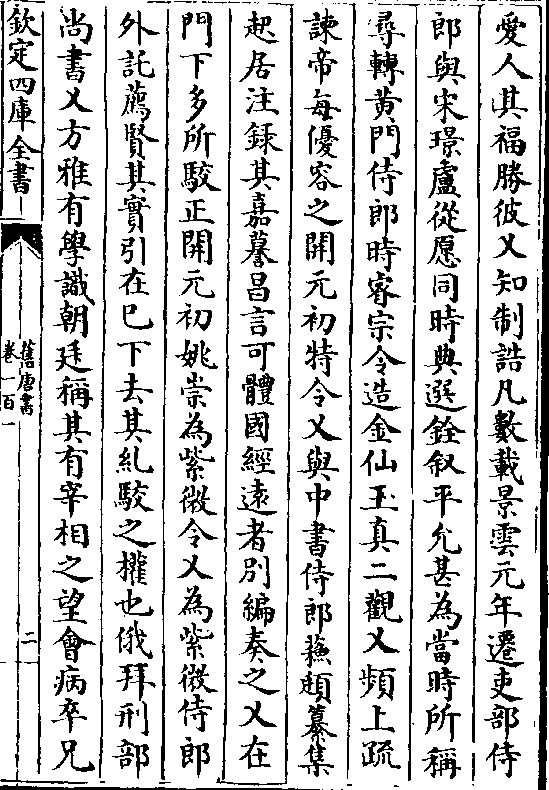 愛人其福勝彼乂知制誥凡數載景雲元年遷吏部侍
郎與宋璟盧從愿同時典選銓叙平允甚為當時所稱
尋轉黄門侍郎時睿宗令造金仙玉真二觀乂頻上疏
諫帝每優容之開元初特令乂與中書侍郎蘓頲纂集
起居注録其嘉謩昌言可體國經遠者別編奏之乂在
門下多所駮正開元初姚崇為紫微令乂為紫微侍郎
外託薦賢其實引在已下去其糺駮之權也俄拜刑部
尚書乂方雅有學識朝廷稱其有宰相之望㑹病卒兄
欽定四庫全書
舊唐書
卷一百一
二